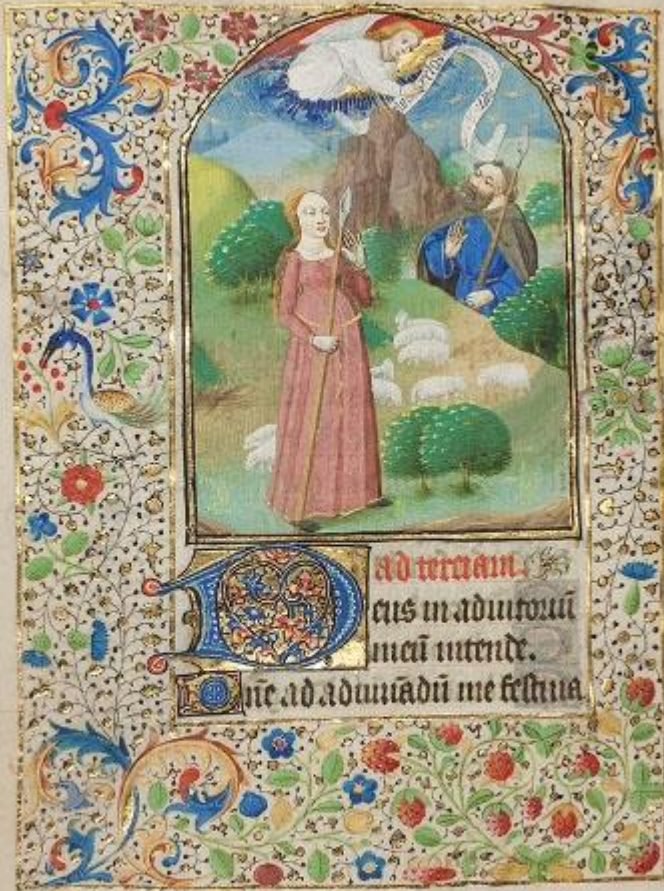 ad terciam.
Deus in adiutoriū
meū intende.
Dn̄e ad adiuuādū me festina